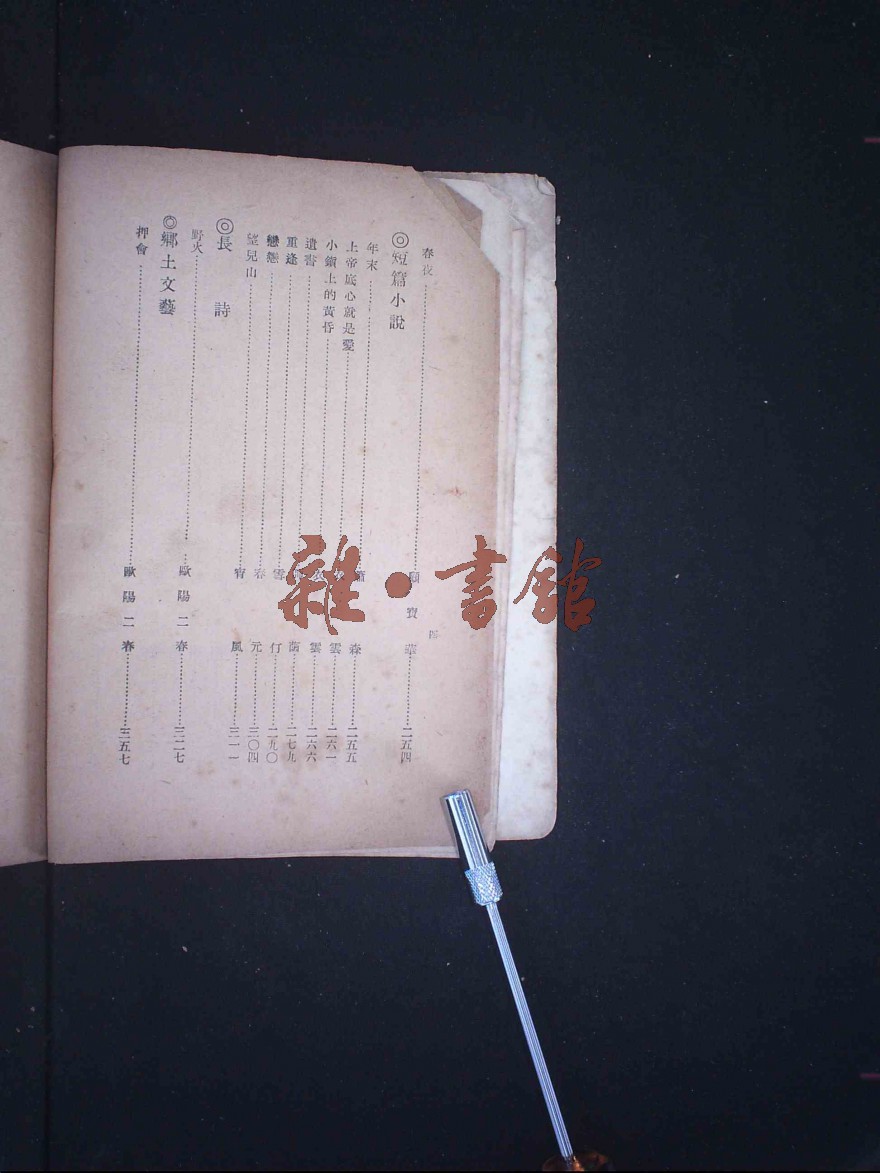 春夜……寶華……二五四
◎短篇小說
年末……森……二五五
上帝底心就是愛……雲……二六一
小鎭上的黃昏……雲……二六六
遺書……二七九
重逢……雪仃……二九〇
戀戀……春元……三〇四
望兒山……宵風……三一一
◎長詩
野火……歐陽二春……三二七
◎鄉土文藝
押會……歐陽二春……三五七
雜·書館